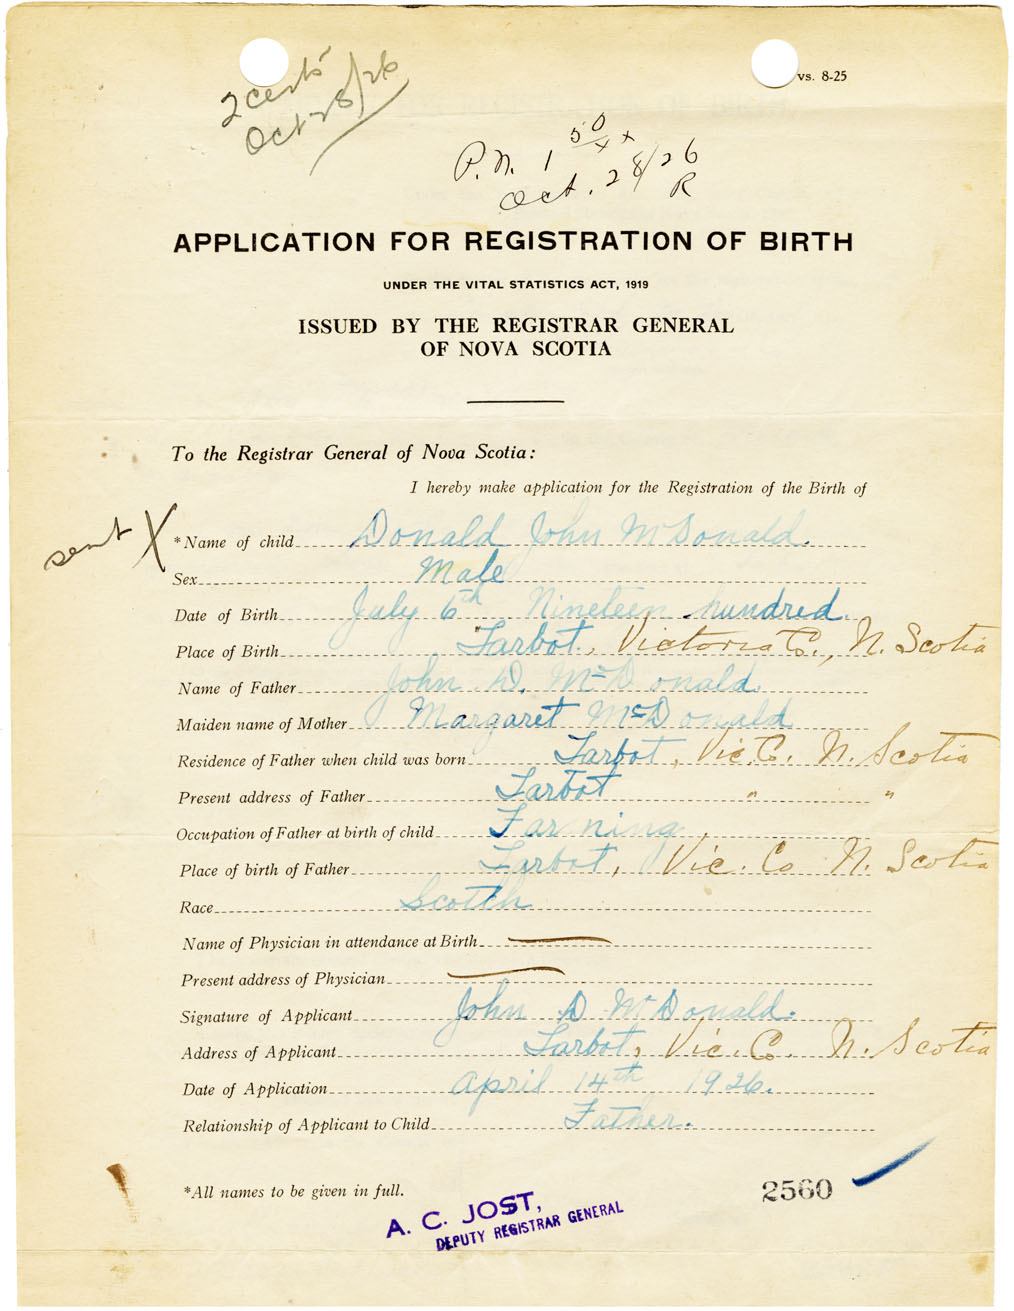 2 certs
Oct 28/26
vs. 8-25
P.N. 1 50/xx
Oct. 28/26
R
APPLICATION FOR REGISTRATION OF BIRTH
UNDER THE VITAL STATISTICS ACT, 1919
ISSUED BY THE REGISTRAR GENERAL
OF NOVA SCOTIA
To the Registrar General of Nova Scotia:
I hereby make application for the Registration of the Birth of
sent X *Name of child Donald John McDonald.
Sex Male
Date of Birth July 6th Nineteen hundred.
Place of Birth Tarbot., Victoria Co., N. Scotia
Name of Father John D. McDonald
Maiden name of Mother Margaret McDonald
Residence of Father when child was born Tarbot, Vic. Co. N. Scotia
Present address of Father Tarbot " "
Occupation of Father at birth of child Farming.
Place of birth of Father Tarbot, Vic. Co N. Scotia
Race Scotch
Name of Physician in attendance at Birth —
Present address of Physician —
Signature of Applicant John D McDonald.
Address of Applicant Tarbot, Vic. Co. N. Scotia
Date of Application April 14th 1926.
Relationship of Applicant to Child Father.
*All names to be given in full.
2560
A. C. JOST,
DEPUTY REGISTRAR GENERAL